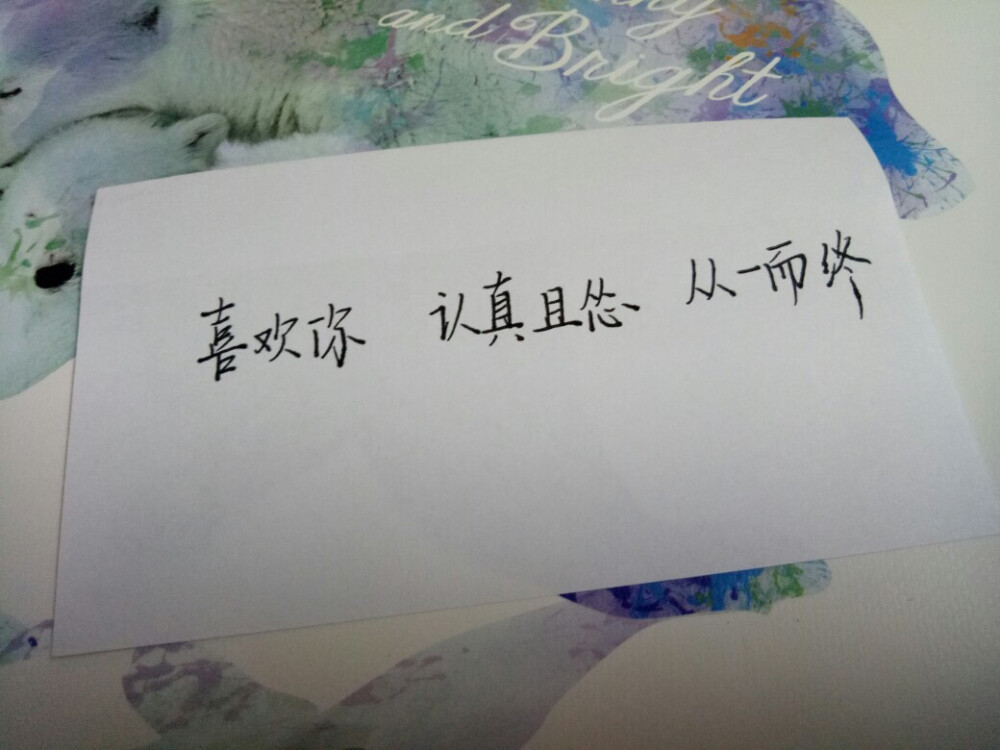 and Bright
喜欢你 认真且怂 从一而终